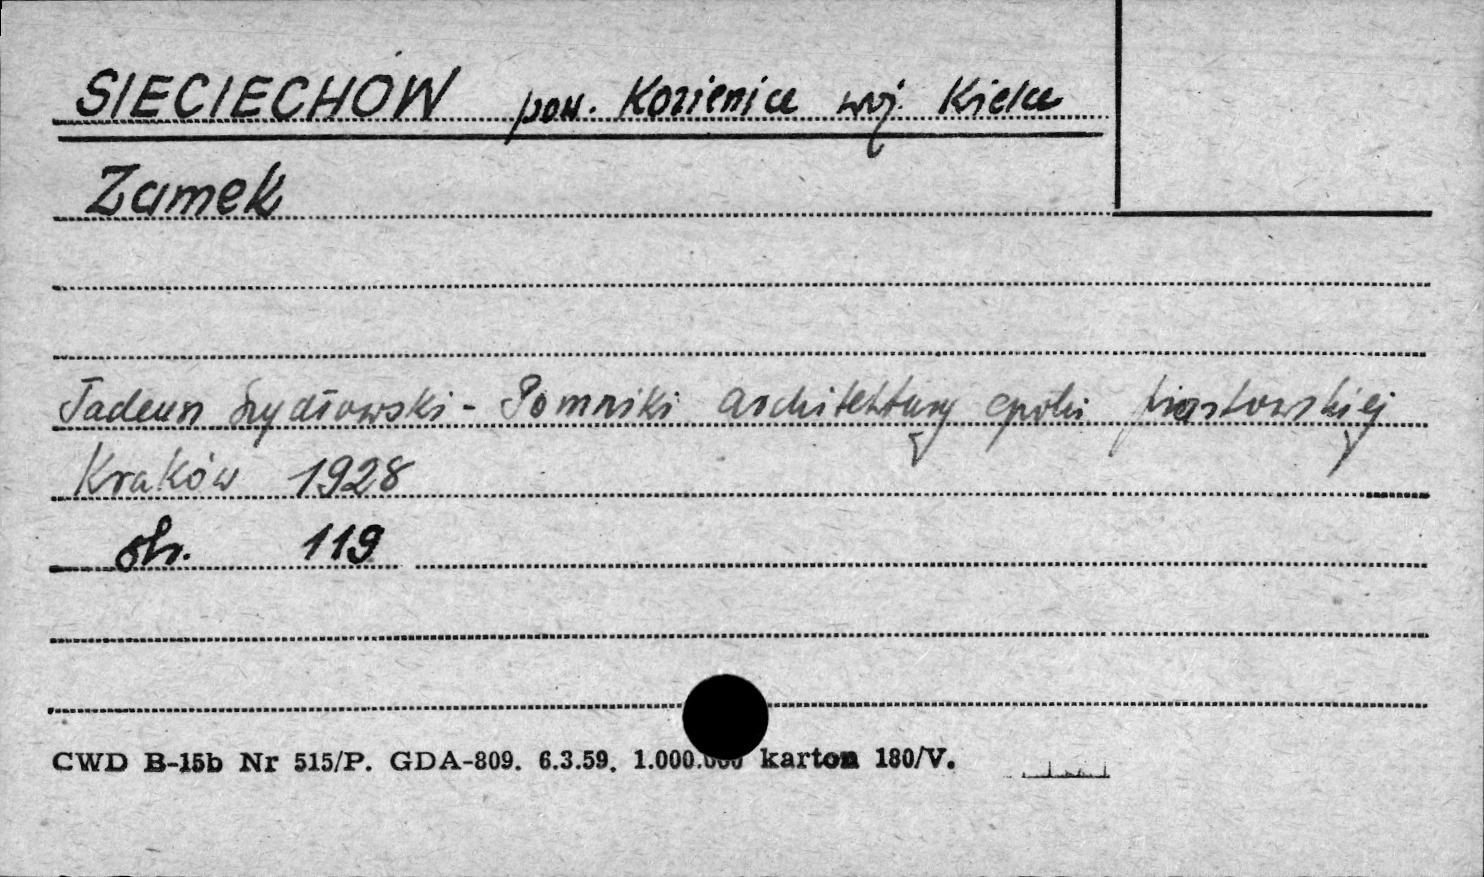 SIECIECHÓW pow. Kozienice woj. Kielce
Zamek
Tadeusz Szydłowski - Pomniki architektury epoki piastowskiej
Kraków 1928
str. 119
CWD B-15b Nr 515/P. GDA-809. 6.3.59. 1.000.000 karton 180/V.